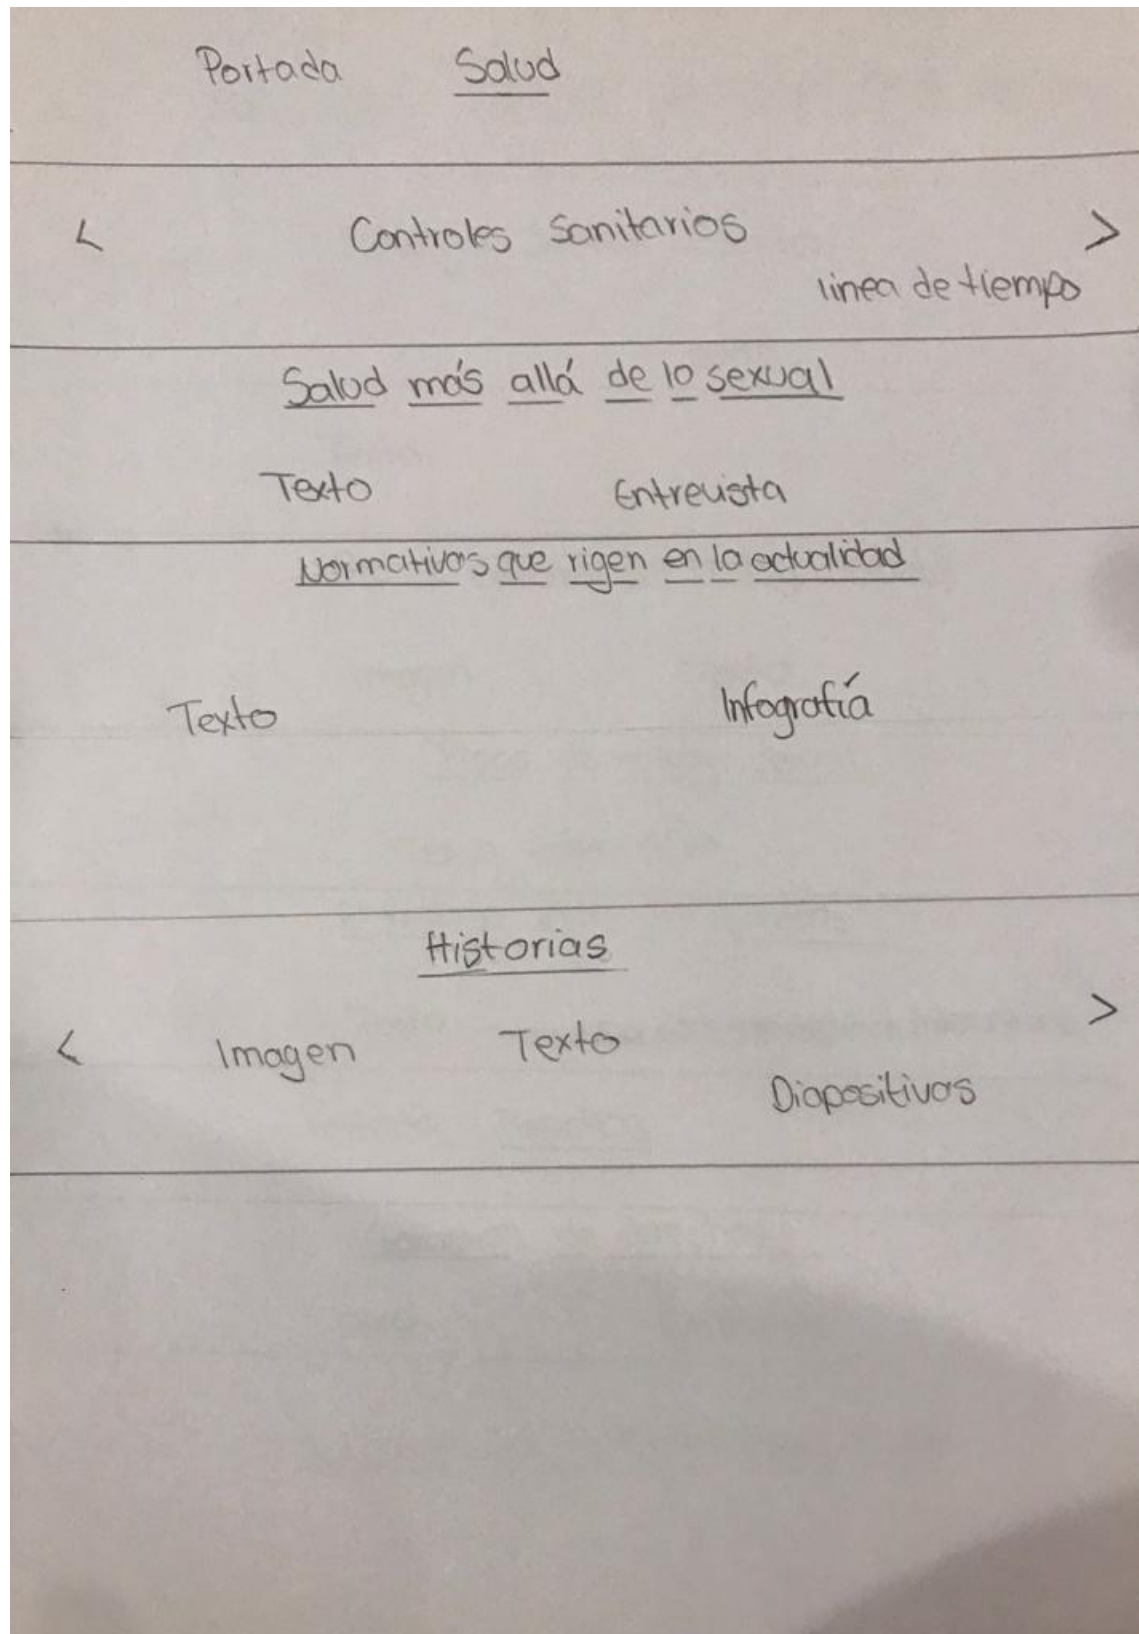 Portada Salud
< Controles Sanitarios >
linea de tiempo
Salud más allá de lo sexual
Texto Entrevista
Normativas que rigen en la actualidad
Texto Infografía
Historias
< Imagen Texto >
Diapositivas